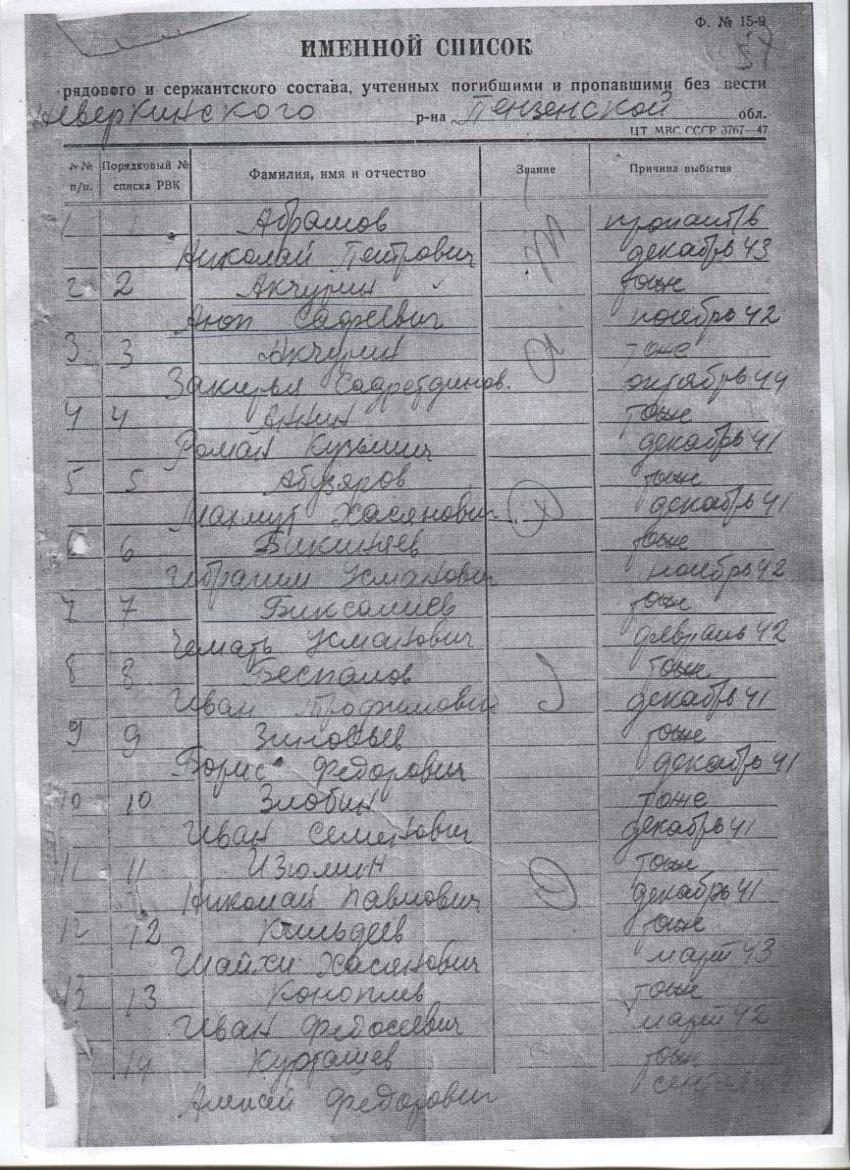 Ф. № 15-9
54
ИМЕННОЙ СПИСОК
рядового и сержантского состава, учтенных погибшими и пропавшими без вести
Неверкинского р-на Пензенской обл.
ЦТ МВС СССР 3767—47
№№ п/п. Порядковый № списка РВК Фамилия, имя и отчество Звание Причина выбытия
1 1 Абрамов проп.
Николай Петрович декабрь 43
2 2 Акчурин тоже
Аюп ноябрь 42
3 3 Акчурин тоже
Закирья Садретдинов. октябрь 44
4 4 Анин тоже
Роман Кузьмич декабрь 41
5 5 Абузяров тоже
Махмут Хасянович декабрь 41
6 6 Бикиняев тоже
Ибрагим Усманович ноябрь 42
7 7 Биксалиев тоже
Усманович февраль 42
8 8 Беспалов тоже
Иван Трофимович декабрь 41
9 9 Зиновьев тоже
Борис Федорович декабрь 41
10 10 Злобин тоже
Иван Семенович декабрь 41
11 11 Изюмин тоже
Николай Павлович декабрь 41
12 12 Кильдеев тоже
Шайхи Хасянович март 43
13 13 Коноплев тоже
Иван Федосеевич март 42
14 Курташев тоже
Алексей Федорович